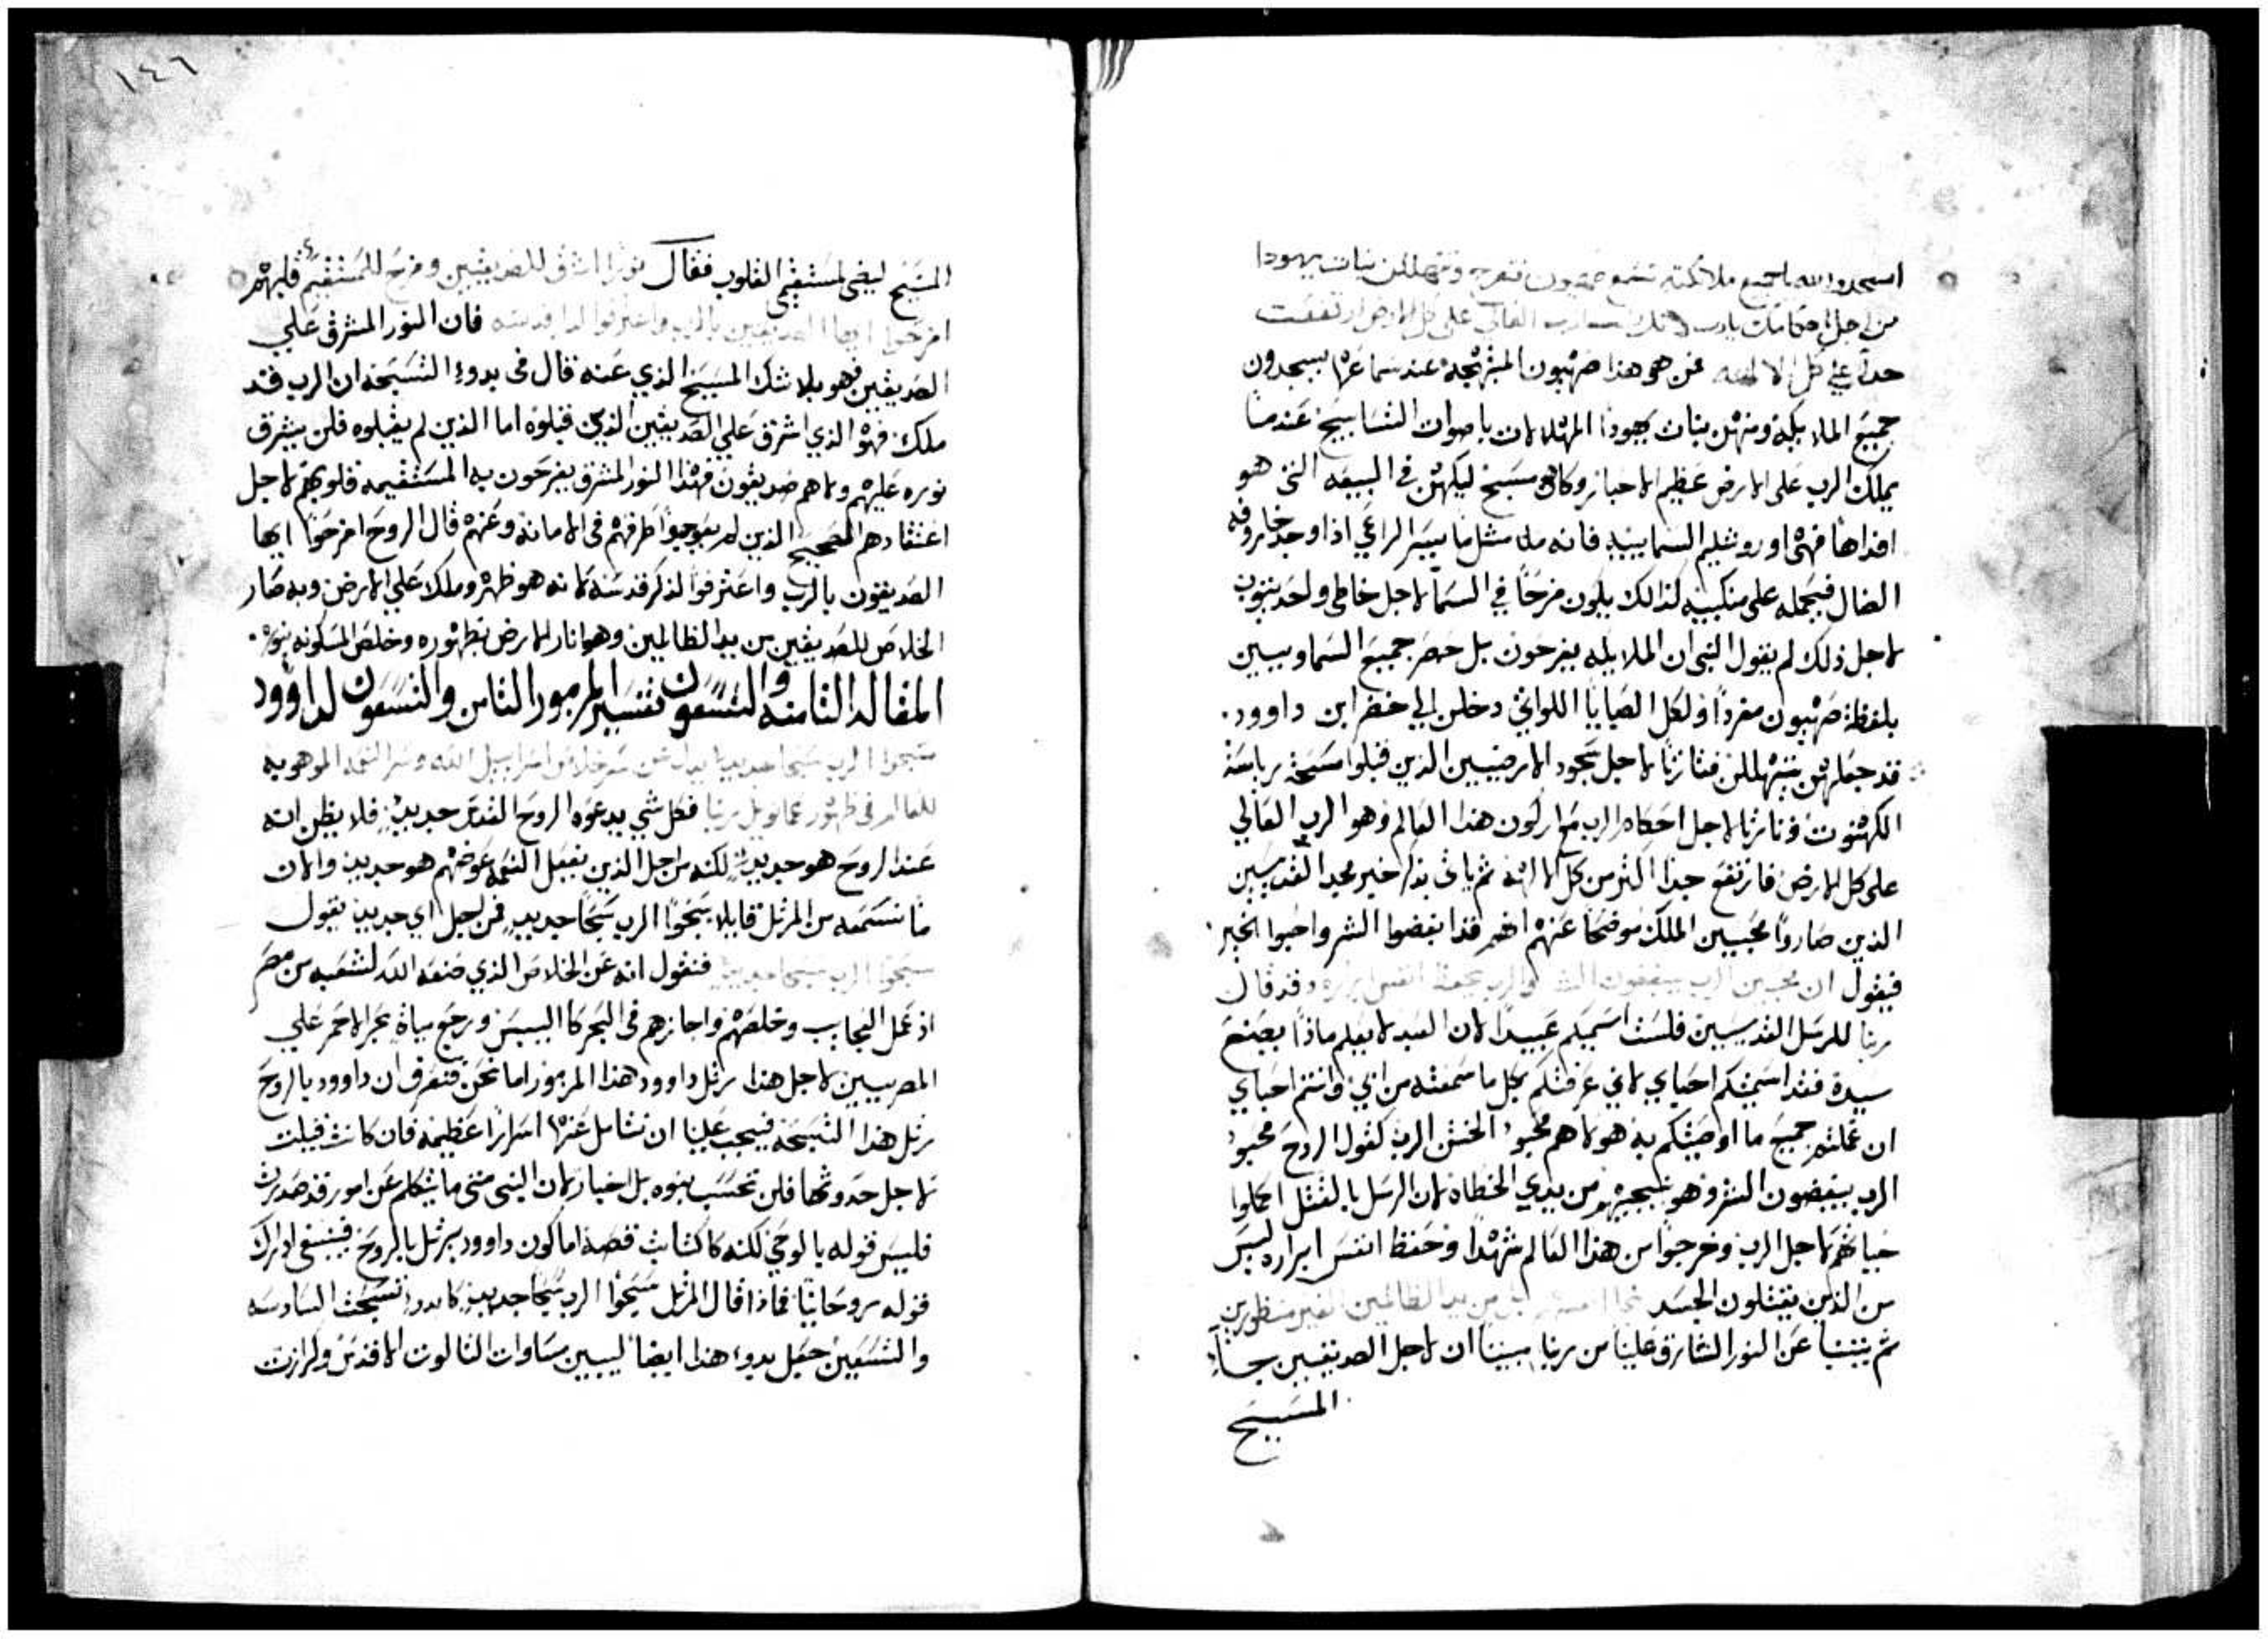 اسجدوا لله يا جميع ملائكته تسمع صهيون تفرح وتتهللن بنات يهودا
من اجل احكامك يارب لانك انت الرب العالي على كل الارض ارتفعت
جداً على كل الالهه فمن هو هذا صهيون المبتهجه عند سماعها يسجدون
جميع الملايكه ومنهن بنات يهودا المهللات باصوات التسابيح عندما
يملك الرب على الارض عظيم الاحبار وكاهن مسيح ليكهن في البيعه التي هو
افداها فهي اورشليم السماييه فانه مثل ما يسر الراعي اذا وجد خاروفه
الضال فيحمله على منكبيه لذالك يكون فرحاً في السما لاجل خاطي واحد يتوب
لاجل ذلك لم يقول النبي ان الملايكه يفرحون بل حصر جميع السماوييين
بلفظة صهيون مفرداً ولكل الصبايا اللواتي دخلن الي خضر ابن داوود.
قد جعلهن يتهللن فتارتاً لاجل سجود الارضيين الذين قبلوا مسحة برياسة
الكهنوت وتارتا لاجل احكام الرب هذا العالم وهو الرب العالي
على كل الارض فارتفع جداً اكثر من كل الالهة ثم ياتي بذكر خير محبة القديسين
الذين صاروا محبيين الملك موضحاً عنهم انهم قد ابغضوا الشر واحبوا الخير
فيقول ان محبين الرب يبغضون الشر والرب يحفظ انفس ابراره وقد قال
ربنا للرسل القديسيين فلست اسميكم عبيداً لان العبد لا يعلم ماذا يصنع
سيده فقد اسميتكم احباي لاني عرفتكم بكل ما سمعته من ابي وانتم احباي
ان عملتم جميع ما اوصيتكم به هولا هم محبوا الرب كقول الروح محبوا
الرب يبغضون الشر وهو ينجيهم من يدي الخطاه لان الرسل بالقتل اكملوا
حياتهم لاجل الرب وخرجوا من هذا العالم شهدا وحفظ انفس ابراره ليس
من الذين يقتلون الجسد من يد الظالمين الغير منظورين
ثم يتنبا عن النور الشارق علينا من ربنا مبينا ان لاجل الصديقيين جاء
المسيح
١٤٦
المسيح ليضي لمستقيمي القلوب فقال نوراً اشرق للصديقيين وفرح للمستقيم قلبهم
افرحوا ايها الصديقيين بالرب واعترفوا لذكر قدسه فان النور المشرق علي
الصديقيين فهو بلا شك المسيح الذي عنه قال في بدوء التسبحه ان الرب قد
ملك فهو الذي اشرق علي الصديقين الذين قبلوه اما الذين لم يقبلوه فلن يشرق
نوره عليهم ولا هم صديقون فهذا النور المشرق يفرحون به المستقيمه قلوبهم لاجل
اعتقادهم الصحيح الذين لم يعوجوا طرقهم في الامانة وعنهم قال الروح افرحوا ايها
الصديقون بالرب واعترفوا لذكر قدسه لانه هو ظهر وملك علي الارض وبه صار
الخلاص للصديقيين من يد الظالمين وهو انار الارض بظهوره وخلص المسكونه بنوره.
المقاله الثامنه والتسعون تفسير المزمور الثامن والتسعون لداوود
سبحوا الرب سبحا جديدا يدل عن سر خلاص اسراييل الله وسر النعمه الموهوبه
للعالم في ظهور عمانويل ربنا فكل شي يدعوه الروح القدس جديد فلا يظن انه
عند الروح هو جديد لكنه من اجل الذين تقبل النعمه عوضهم هو جديد والان
ما نسمعه من المرتل قايلا سبحوا الرب سبحاً جديد فمن اجل اي جديد يقول
سبحوا الرب سبحا جديدا فنقول انه عن الخلاص الذي صنعه الله لشعبه من مصر
اذ عمل العجايب وخلصهم واجازهم في البحر كا اليبس ورجع مياه بحر الاحمر علي
المصريين لاجل هذا رتل داوود هذا المزمور اما نحن فنعرف ان داوود بالروح
رتل هذا التسبحة فيجب علينا ان نتامل عنها اسراراً عظيمه فان كانت قيلت
لاجل حدوثها فلن تحسب نبوه بل اخبار لان النبي متى ما يتكلم عن امور قد صدرت
فليس قوله بالوحي لكنه كاكتاب قصة اما كون داوود يرتل بالروح فينبغي ادراك
قوله روحانيّاً فماذا قال المرتل سبحوا الرب سبحا جديد كا بدوء تسبحت السادسه
والتسعين جعل بدوء هذا ايضا ليبين مساوات الثالوت الاقدس وكرازت